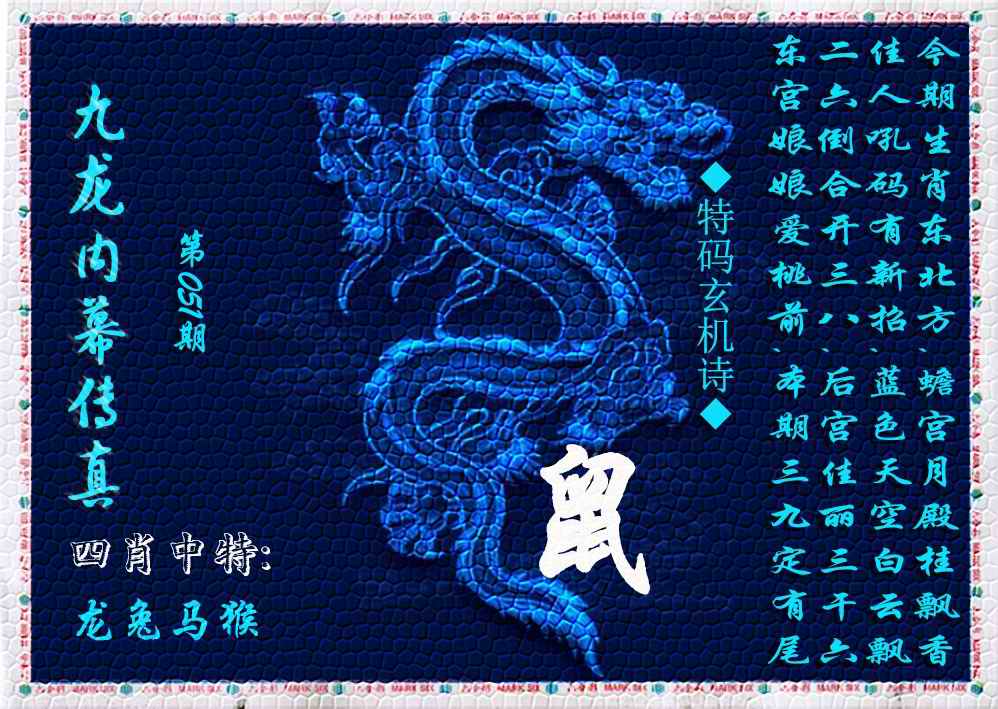 今期生肖东北方、蟾宫月殿桂飘香
佳人吼码有新招、蓝色天空白云飘
二六倒合开三八、后宫佳丽三千六
东宫娘娘爱桃前、本期三九定有尾
◆特码玄机诗◆
第051期
九龙内幕传真
鼠
四肖中特:
龙兔马猴